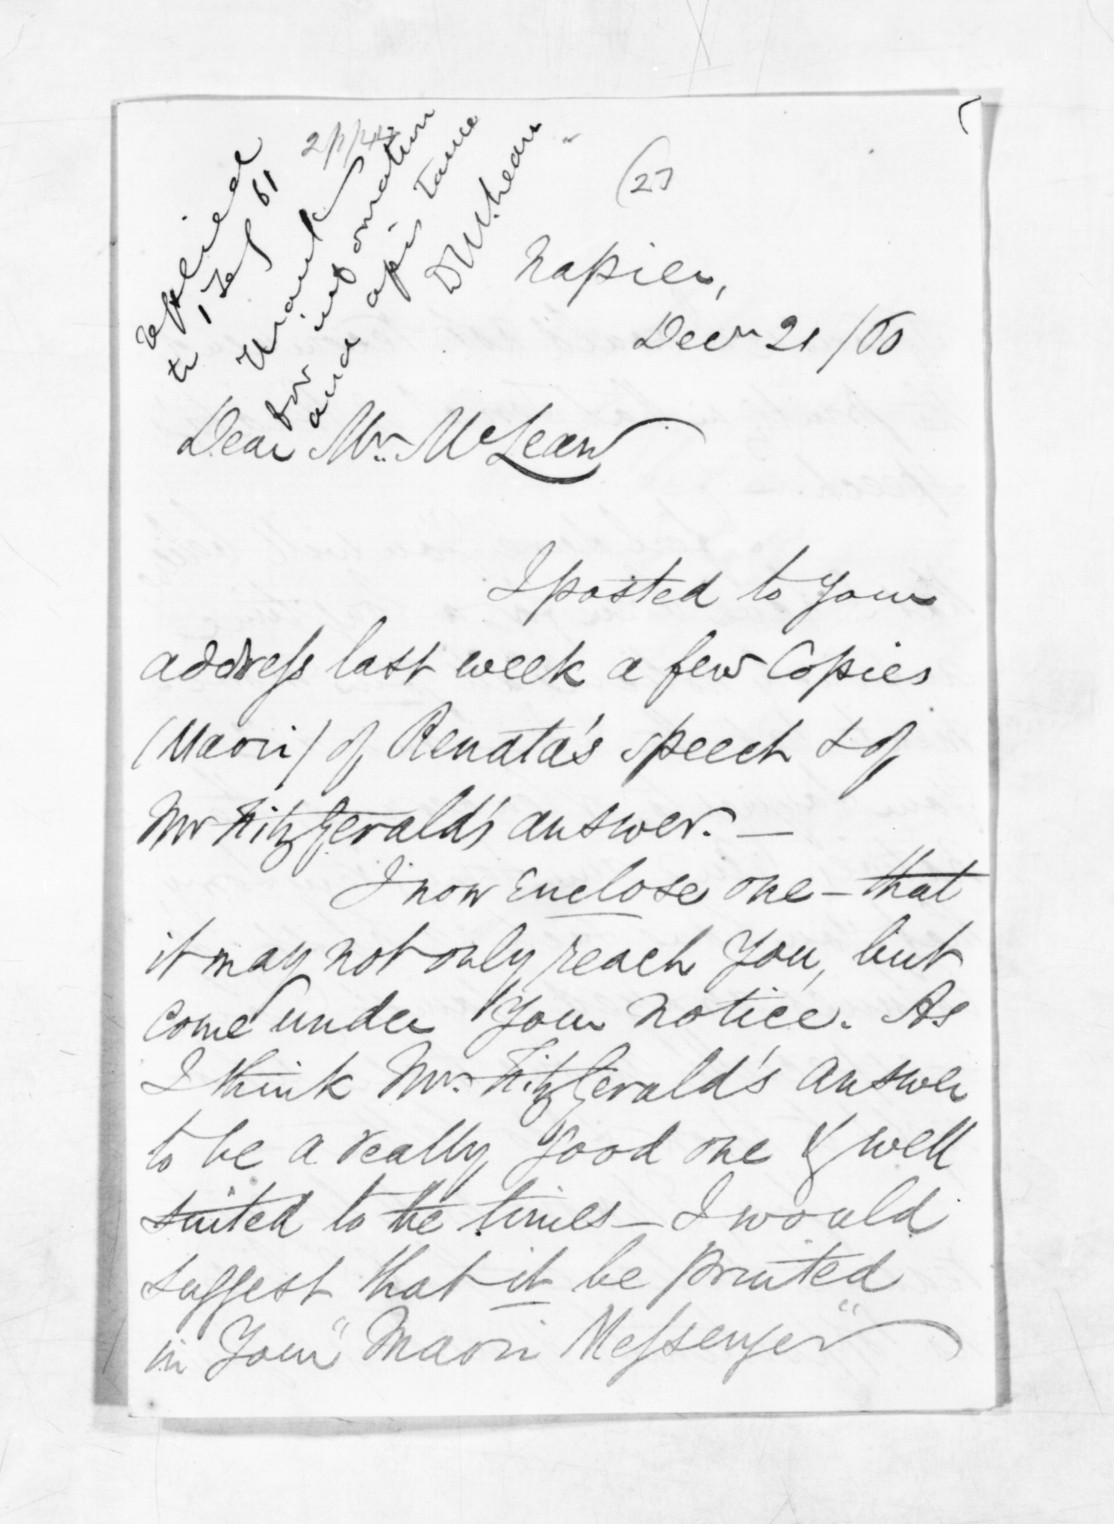 Replied
to 1 Feb 61
Thanks
for information
and assistance
D McLean
(27
Napier,
Decr 21/60
Dear Mr. McLean
I posted to your
address last week a few Copies
(Maori) of Renata's speech & of
Mr FitzGerald's answer. —
I now enclose one – that
it may not only reach you, but
come under your notice. As
I think Mr. FitzGerald's answer
to be a really good one & well
suited to the times – I would
suggest that it be printed
in your "Maori Messenger"